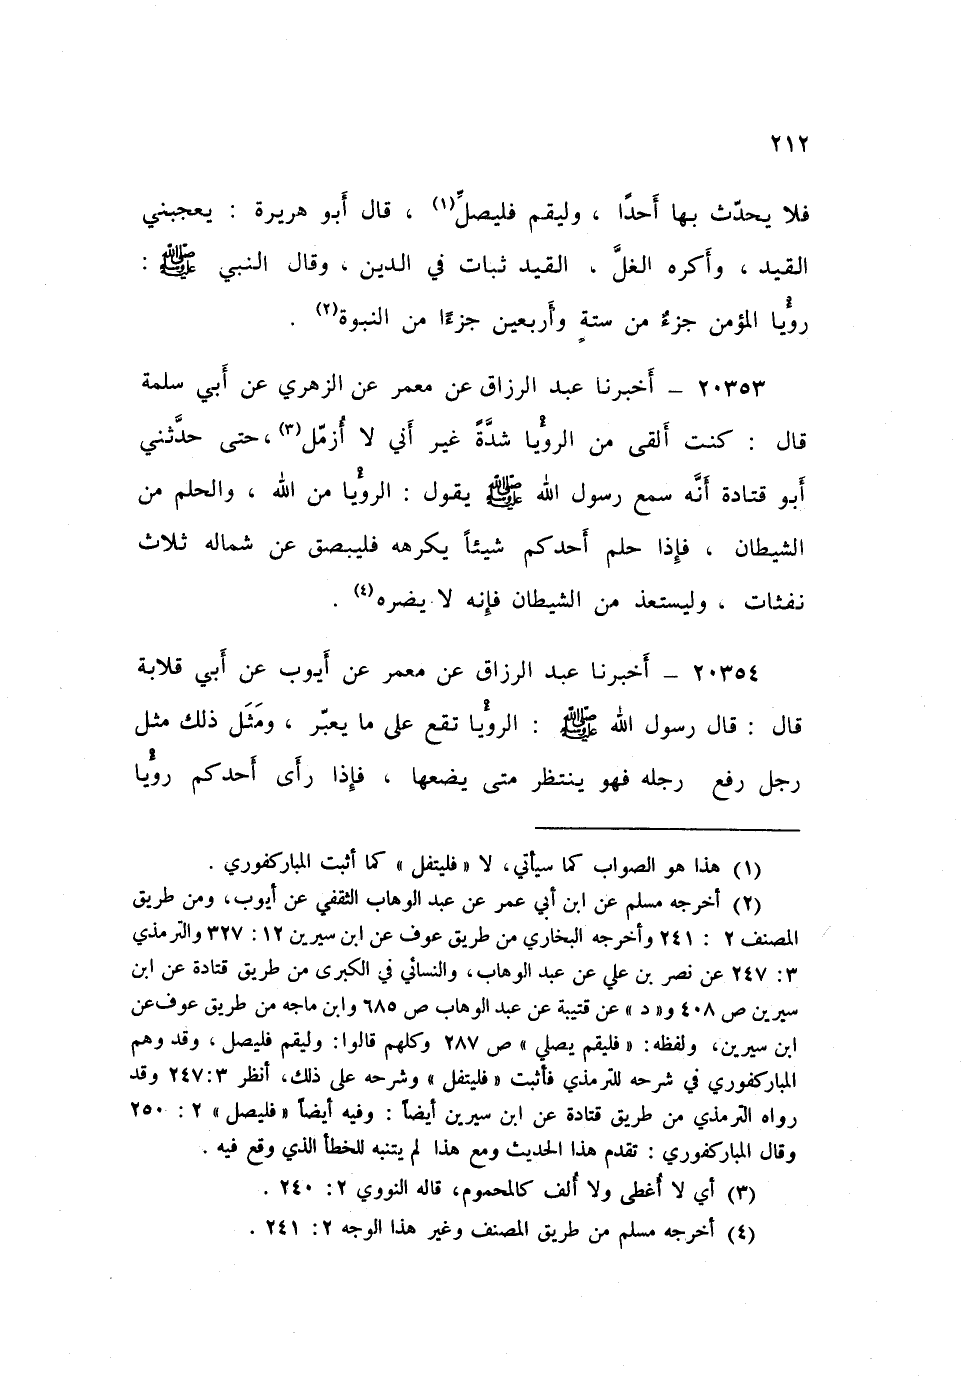 ٢١٢
فلا يحدّث بها أَحدًا ، وليقم فليصلِّ(١) ، قال أَبو هريرة : يعجبني
القيد ، وأَكره الغلَّ ، القيد ثبات في الدين ، وقال النبي ﷺ :
رؤْيا المؤمن جزءٌ من ستةٍ وأَربعين جزءًا من النبوة(٢) .
٢٠٣٥٣ – أَخبرنا عبد الرزاق عن معمر عن الزهري عن أَبي سلمة
قال : كنت أَلقى من الرؤْيا شدَّةً غير أَني لا أُزمّل(٣)، حتى حدَّثني
أَبو قتادة أَنَّه سمع رسول الله ﷺ يقول : الرؤْيا من الله ، والحلم من
الشيطان ، فإِذا حلم أَحدكم شيئاً يكرهه فليبصق عن شماله ثلاث
نفثات ، وليستعذ من الشيطان فإِنه لا يضره(٤) .
٢٠٣٥٤ – أَخبرنا عبد الرزاق عن معمر عن أَيوب عن أَبي قلابة
قال : قال رسول الله ﷺ : الرؤْيا تقع على ما يعبّر ، ومَثَل ذلك مثل
رجل رفع رجله فهو ينتظر متى يضعها ، فإِذا رأَى أَحدكم رؤْيا
(١) هذا هو الصواب كما سيأتي، لا « فليتفل » كما أثبت المباركفوري .
(٢) أخرجه مسلم عن ابن أبي عمر عن عبد الوهاب الثقفي عن أيوب، ومن طريق
المصنف ٢ : ٢٤١ وأخرجه البخاري من طريق عوف عن ابن سيرين ١٢: ٣٢٧ والترمذي
٣: ٢٤٧ عن نصر بن علي عن عبد الوهاب، والنسائي في الكبرى من طريق قتادة عن ابن
سيرين ص ٤٠٨ و« د » عن قتيبة عن عبد الوهاب ص ٦٨٥ وابن ماجه من طريق عوف عن
ابن سيرين، ولفظه: « فليقم يصلي » ص ٢٨٧ وكلهم قالوا: وليقم فليصل ، وقد وهم
المباركفوري في شرحه للترمذي فأثبت « فليتفل » وشرحه على ذلك، أنظر ٣:٢٤٧ وقد
رواه الترمذي من طريق قتادة عن ابن سيرين أيضاً : وفيه أيضاً « فليصل » ٢ : ٢٥٠
وقال المباركفوري : تقدم هذا الحديث ومع هذا لم يتنبه للخطأ الذي وقع فيه .
(٣) أي لا أُغطى ولا أُلف كالمحموم، قاله النووي ٢: ٢٤٠ .
(٤) أخرجه مسلم من طريق المصنف وغير هذا الوجه ٢: ٢٤١ .